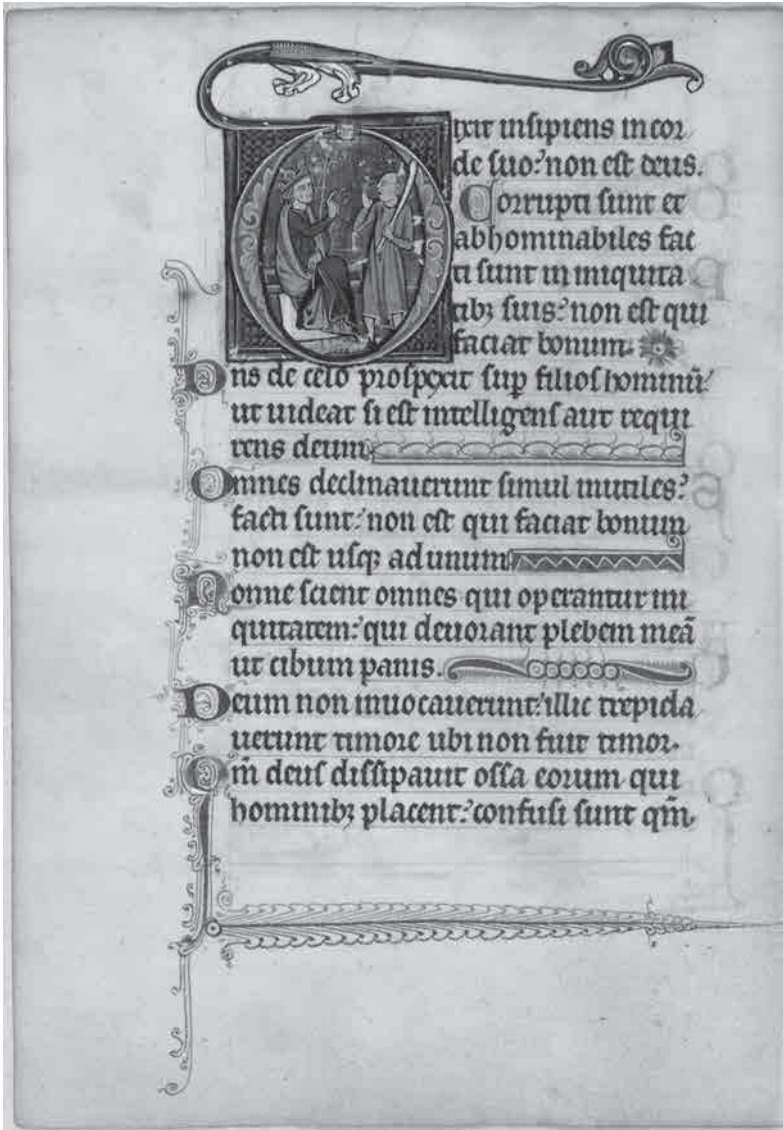 Dixit insipiens in cor
de suo: non est deus.
Corrupti sunt et
abhominabiles fac
ti sunt in iniquita
tibꝫ suis: non est qui
faciat bonum.
Dns de celo prospexit sup filios hominū:
ut uideat si est intelligens aut requi
rens deum
Omnes declinauerunt simul inutiles:
facti sunt: non est qui faciat bonum
non est usqꝫ ad unum
Nonne scient omnes qui operantur ini
quitatem: qui deuorant plebem meā
ut cibum panis.
Deum non inuocauerunt: illic trepida
uerunt timore ubi non fuit timor.
Qm̄ deus dissipauit ossa eorum qui
hominibꝫ placent: confusi sunt qm̄